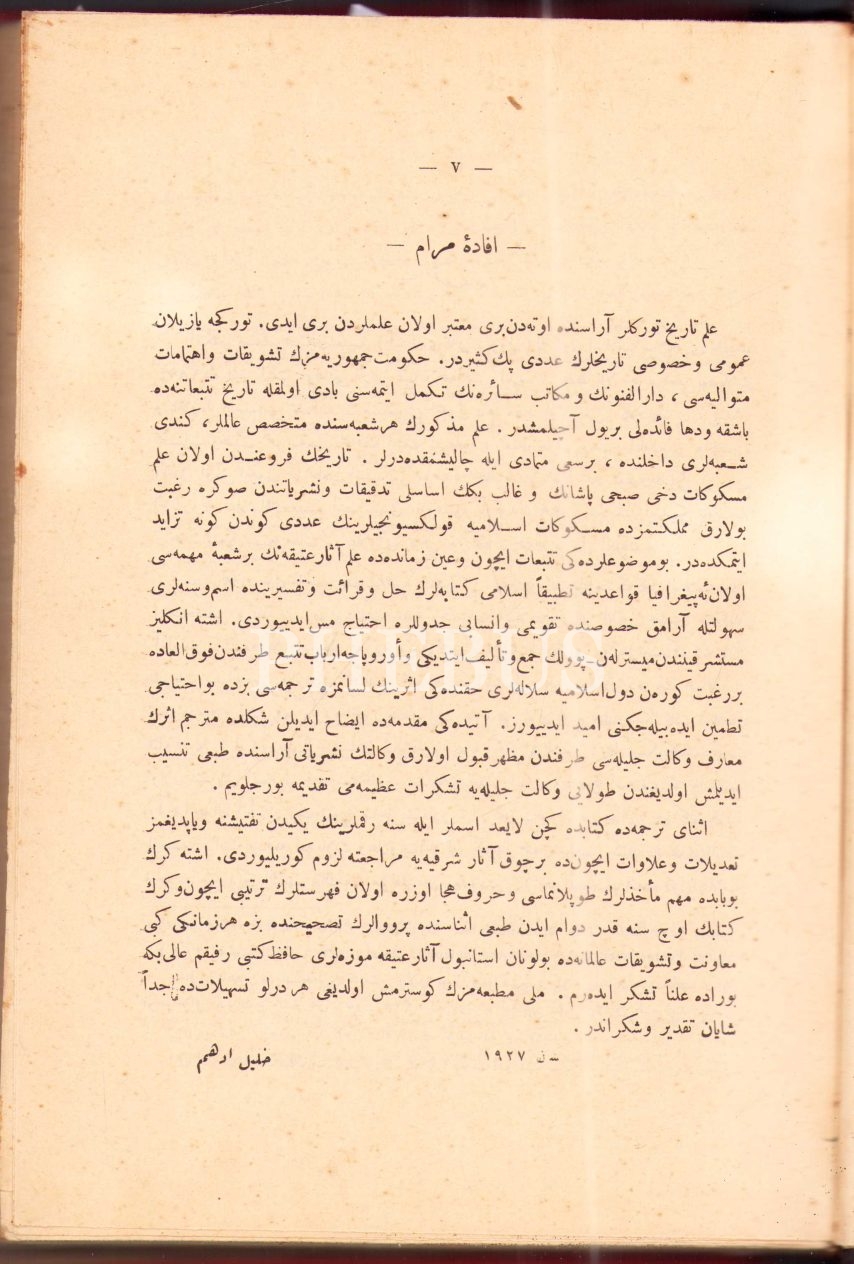 — ٧ —
— افادهٔ مرام —
علم تاريخ توركلر آراسنده اوته‌دن‌برى معتبر اولان علملردن برى ايدى. توركجه يازيلان
عمومى وخصوصى تاريخلرك عددى پك كثيردر. حكومت جمهوريه‌مزك تشويقات واهتمامات
متواليه‌سى ، دارالفنونك ومكاتب سائره‌نك تكمل ايتمه‌سنى بادى اولمقله تاريخ تتبعاتنه‌ده
باشقه ودها فائده‌لى بريول آچيلمشدر. علم مذكورك هرشعبه‌سنده متخصص عالملر، كندى
شعبه‌لرى داخلنده ، برسعى متمادى ايله چاليشمقده‌درلر . تاريخك فروعندن اولان علم
مسكوكات دخى صبحى پاشانك و غالب بكك اساسلى تدقيقات ونشرياتندن صوكره رغبت
بولارق مملكتمزده مسكوكات اسلاميه قولكسيونجيلرينك عددى كوندن كونه تزايد
ايتمكده‌در. بوموضوعلرده‌كى تتبعات ايچون وعين زمانده‌ده علم آثارعتيقه‌نك برشعبهٔ مهمه‌سى
اولان ئه‌پيغرافيا قواعدينه تطبيقاً اسلامى كتابه‌لرك حل وقرائت وتفسيرينده اسم وسنه‌لرى
سهولتله آرامق خصوصنده تقويمى وانسابى جدوللره احتياج مس‌ايدييوردى. اشته انكليز
مستشرقيندن ميسترلەن-پوولك جمع وتأليف ايتديكى وأوروپاجه ارباب تتبع طرفندن فوق العاده
بررغبت كوره‌ن دول اسلاميه سلاله‌لرى حقنده‌كى اثرينك لسانمزه ترجمه‌سى بزده بواحتياجى
تطمين ايده‌بيله‌جكنى اميد ايدييورز. آتيده‌كى مقدمه‌ده ايضاح ايديلن شكلده مترجم اثرك
معارف وكالت جليله‌سى طرفندن مظهر قبول اولارق وكالتك نشرياتى آراسنده طبعى تنسيب
ايديلمش اولديغندن طولايى وكالت جليله‌يه تشكرات عظيمه‌مى تقديمه بورجلويم .
اثناى ترجمه‌ده كتابده كچن لايعد اسملر ايله سنه رقملرينك يكيدن تفتيشنه وياپديغمز
تعديلات وعلاوات ايچون‌ده برچوق آثار شرقيه‌يه مراجعته لزوم كوريليوردى. اشته كرك
بوبابده مهم مأخذلرك طوپلانماسى وحروف هجا اوزره اولان فهرستلرك ترتيبى ايچون وكرك
كتابك اوچ سنه قدر دوام ايدن طبعى اثناسنده پرووالرك تصحيحنده بزه هرزمانكى كبى
معاونت وتشويقات عالمانه‌ده بولونان استانبول آثارعتيقه موزه‌لرى حافظ كتبى رفيقم عالى‌بكه
بوراده علناً تشكر ايده‌رم . ملى مطبعه‌مزك كوسترمش اولديغى هر درلو تسهيلات‌ده جداً
شايان تقدير وشكراندر .
١٩٢٧
خليل ادهم